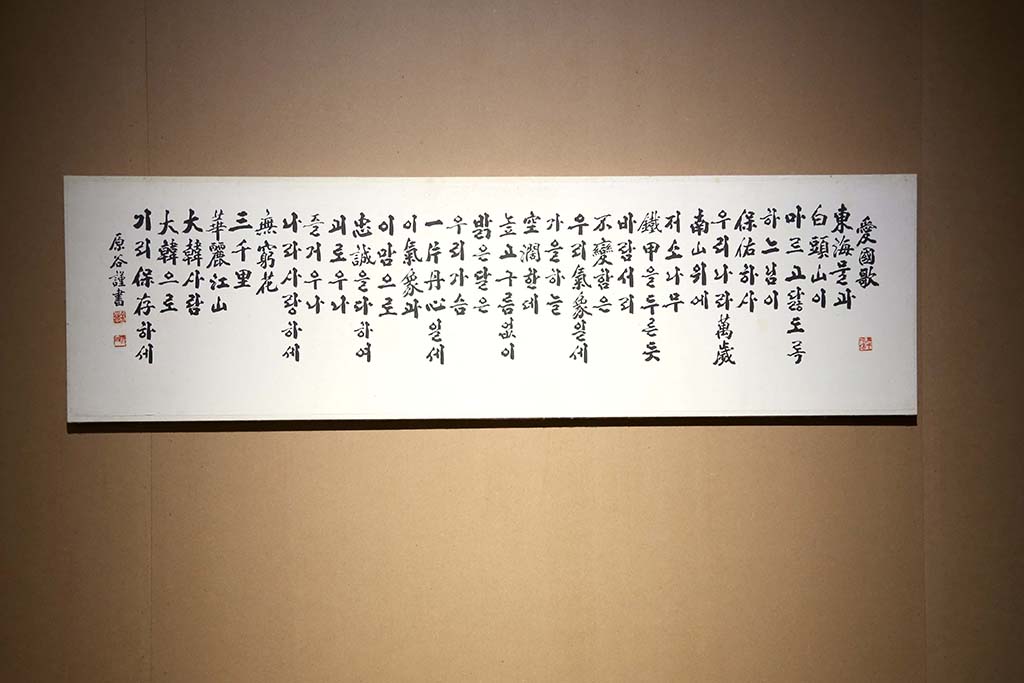 愛國歌
東海물과
白頭山이
마르고닳도록
하느님이
保佑하사
우리나라萬歲
南山위에
저소나무
鐵甲을두른듯
바람서리
不變함은
우리氣象일세
가을하늘
空濶한데
높고구름없이
밝은달은
우리가슴
一片丹心일세
이氣象과
이맘으로
忠誠을다하여
괴로우나
즐거우나
나라사랑하세
無窮花
三千里
華麗江山
大韓사람
大韓으로
기리保存하세
原谷謹書